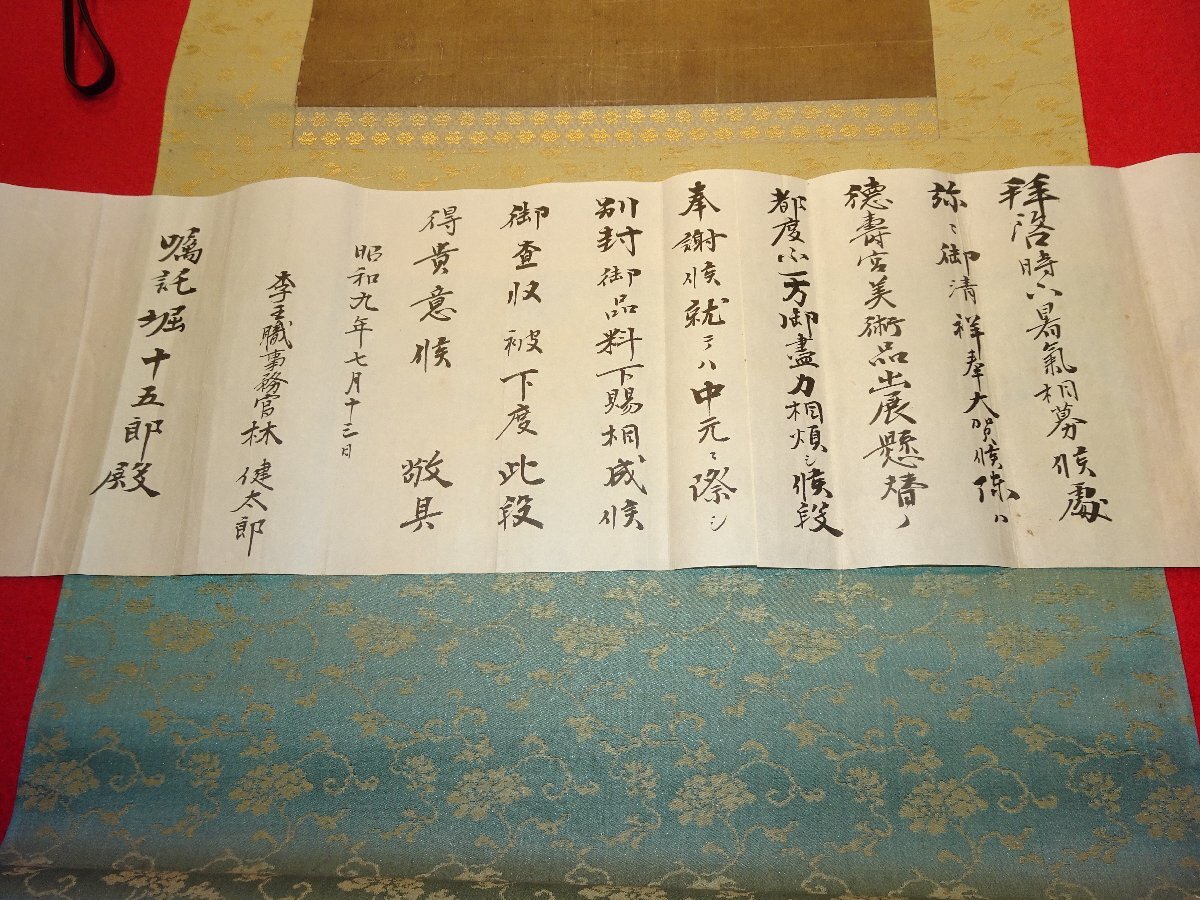 拝啓時下暑氣相募候處
弥々御清祥奉大賀候陳ハ
徳壽宮美術品出展懸替ノ
都度不一方御盡力相煩シ候段
奉謝候就テハ中元ニ際シ
別封御品料下賜相成候
御査収被下度此段
得貴意候 敬具
昭和九年七月十三日
李王職事務官林健太郎
嘱託堀十五郎殿